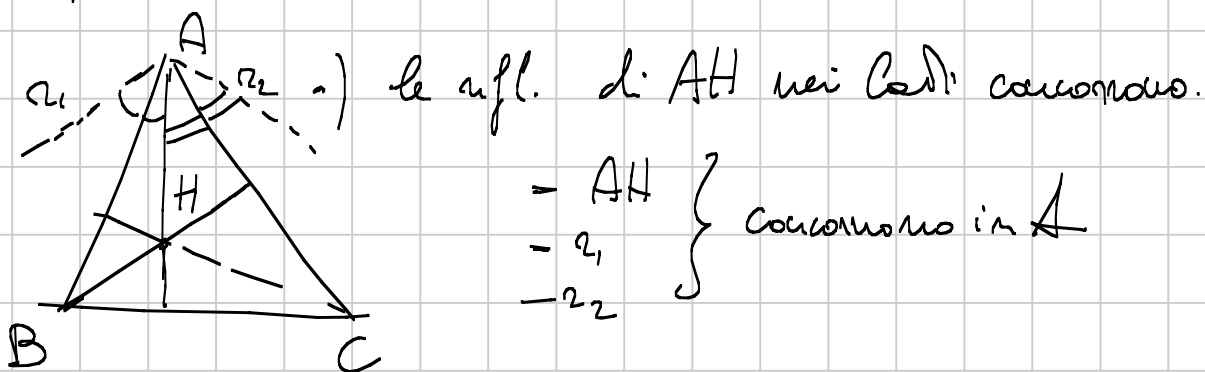 A
r₁
r₂ •) le rifl. di AH nei lati concorrono.
H
- AH
- r₁ } concorrono in A
- r₂
B
C